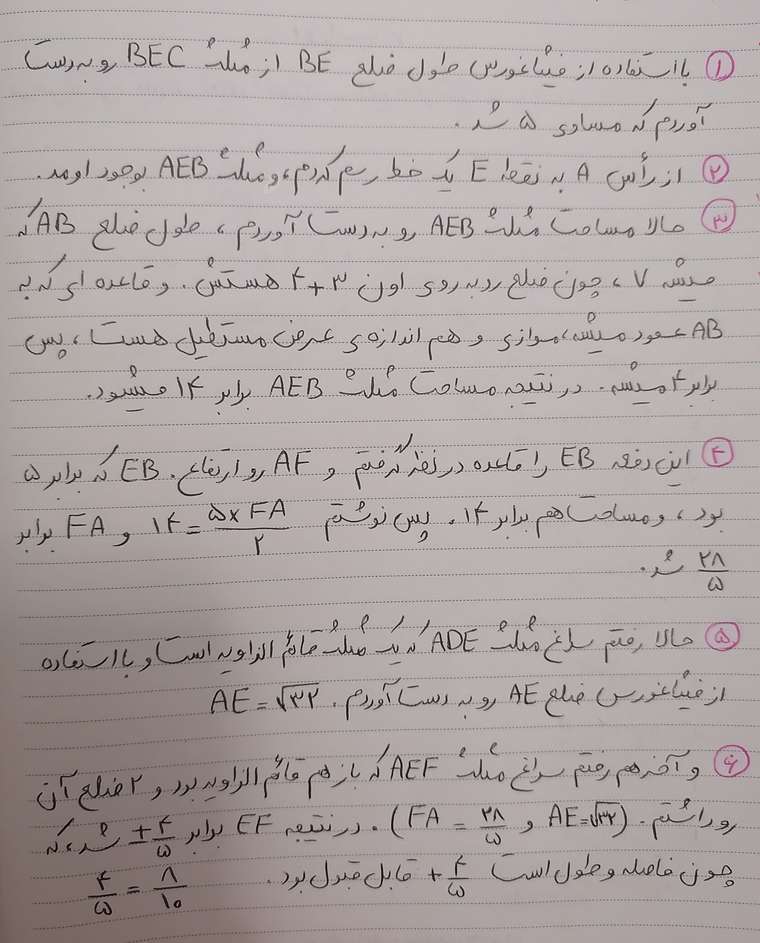 ① با استفاده از فیثاغورس طول ضلع BE از مُثلث BEC رو به دست
آوردم که مساوی ۵ شد.
② از رأس A به نقطه E یک خط رسم کردم، و مُثلث AEB بوجود اومد.
③ حالا مساحت مُثلث AEB رو به دست آوردم، طول ضلع AB که
میشه ۷، چون ضلع رو به روی اون ۳+۴ هستش. و قاعده ای که به
AB عمود میشه، موازی و هم اندازه ی عرض مستطیل هست، پس
برابر ۴ میشه. در نتیجه مساحت مُثلث AEB برابر ۱۴ میشود.
④ این دفعه EB را قاعده در نظر گرفتم و AF رو ارتفاع. EB که برابر ۵
بود، و مساحت هم برابر ۱۴. پس نوشتم ۱۴ = (۵×FA)/۲ و FA برابر
۲۸/۵ شد.
⑤ حالا رفتم سراغ مُثلث ADE که یک مُثلث قائم الزاویه است و با استفاده
از فیثاغورس ضلع AE رو به دست آوردم. AE = √۳۲
⑥ و آخر هم رفتم سراغ مُثلث AEF که باز هم قائم الزاویه بود و ۲ ضلع آن
رو داشتم. (AE=√۳۲ و FA = ۲۸/۵). در نتیجه EF برابر ±۴/۵ شد، که
چون فاصله و طول است +۴/۵ قابل قبول بود. ۴/۵ = ۸/۱۰